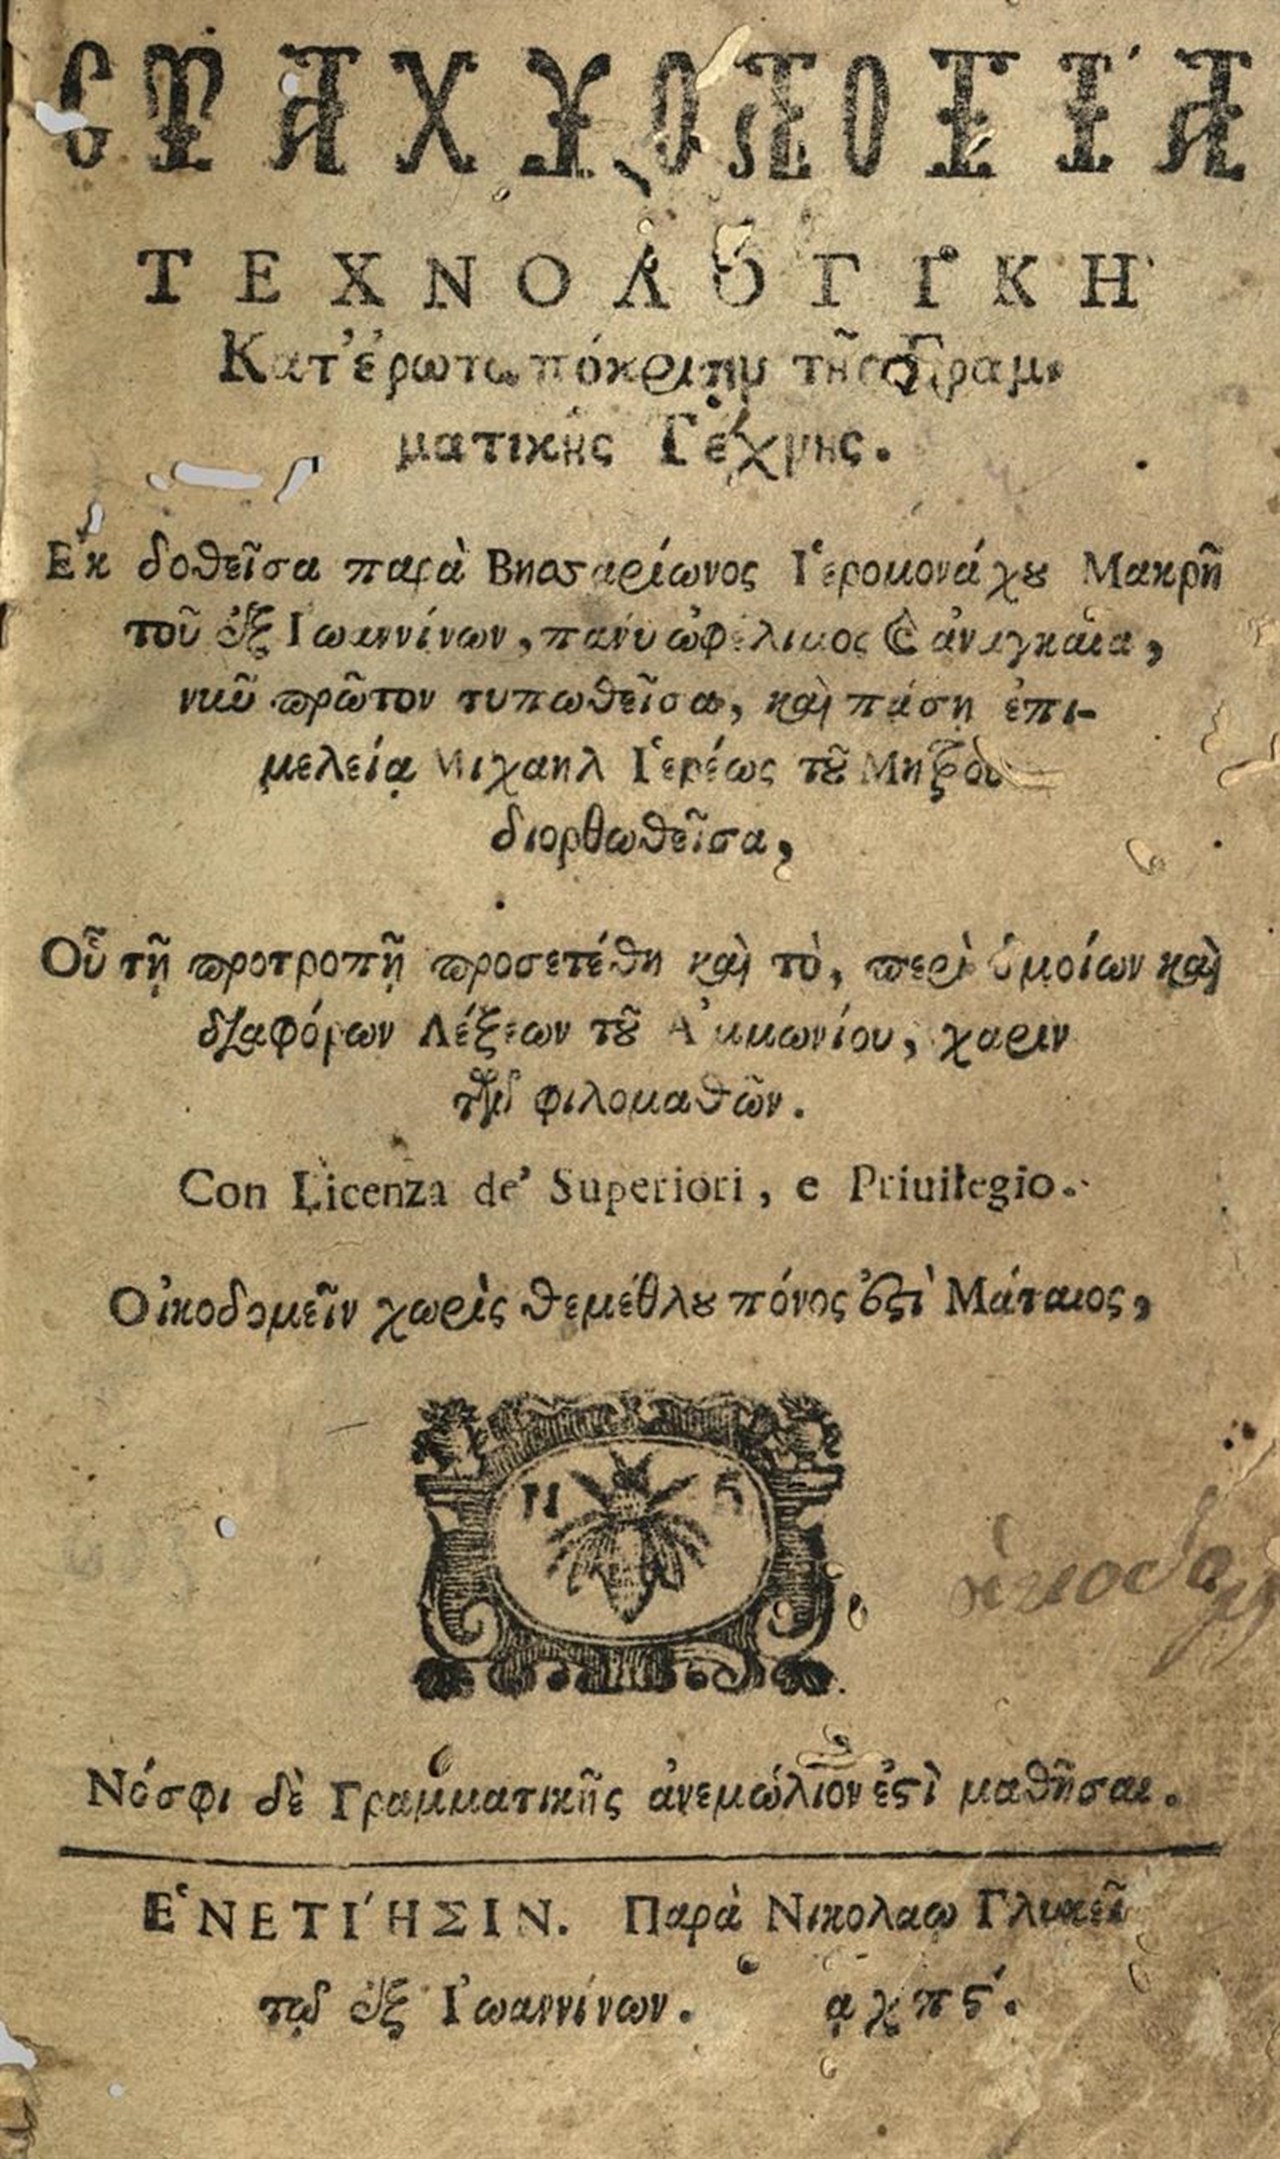 ΣΤΑΧΥΟΛΟΓΙΑ
ΤΕΧΝΟΛΟΓΙΚΗ
Κατ' ἐρωταπόκρισιν τῆς Γραμ-
ματικῆς Τέχνης.
Ε᾿κ δοθεῖσα παρὰ Βησσαρίωνος Ι῾ερομονάχου Μακρῆ
τοῦ ἐξ Ι᾿ωαννίνων, πάνυ ὠφέλιμος καὶ ἀναγκαία,
νιῦ πρῶτον τυπωθεῖσα, καὶ πάσῃ ἐπι-
μελείᾳ Μιχαὴλ Ι῾ερέως τοῦ
διορθωθεῖσα,
Οὗ τῇ προτροπῇ προσετέθη καὶ τὸ, περὶ ὁμοίων καὶ
διαφόρων Λέξεων τοῦ Α᾿μμωνίου, χάριν
τῶν φιλομαθῶν.
Con Licenza de' Superiori, e Priuilegio.
Οἰκοδομεῖν χωρὶς θεμέθλου πόνος ἐστὶ Μάταιος,
Νόσφι δὲ Γραμματικῆς ἀνεμώλιον ἐστὶ μαθῆσαι.
Ε῾ΝΕΤΙ´ΗΣΙΝ. Παρὰ Νικολάῳ Γλυκεῖ
τῷ ἐξ Ι᾿ωαννίνων. αχπϛ΄.